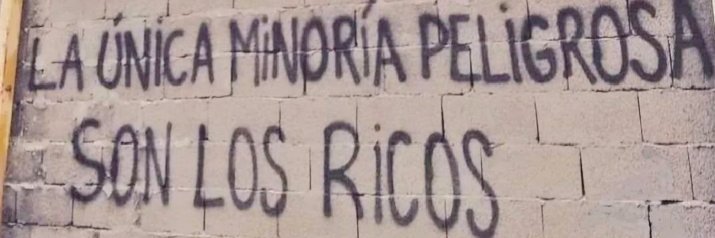 LA ÚNICA MINORÍA PELIGROSA
SON LOS RICOS